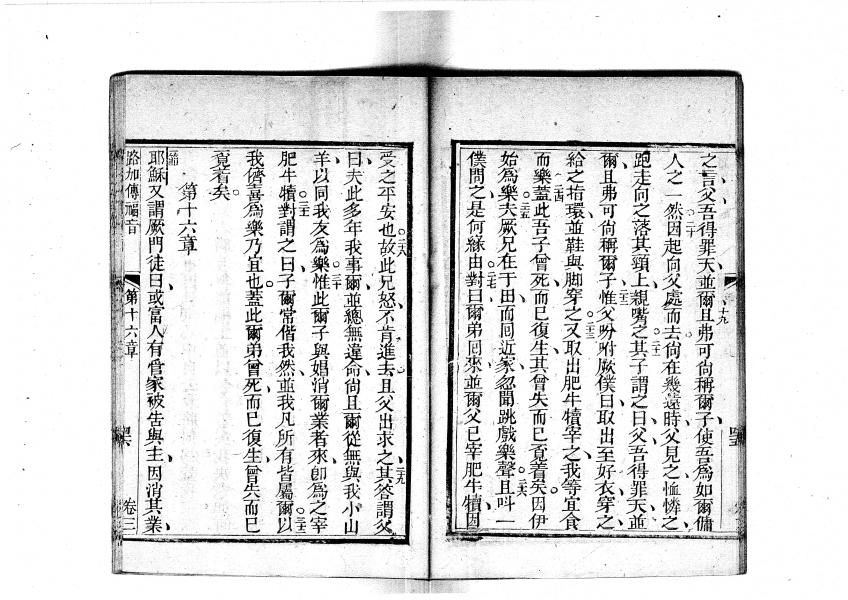 之言父吾得罪天並爾且弗可尙稱爾子使吾爲如爾傭
十九
人之一然因起向父處而去尙在幾遠時父見之恤憐之
二十
跑走向之落其頸上親嘴之其子謂之曰父吾得罪天並
二十一
爾且弗可尙稱爾子惟父吩咐厥僕曰取出至好衣穿之
二十二
給之指環並鞋與脚穿之又取出肥牛犢宰之我等宜食
二十三
而樂蓋此吾子曾死而已復生其曾失而已覓着矣因伊
二十四
始爲樂夫厥兄在于田而囘近家忽聞跳戲樂聲且呌一
二十五
二十六
僕問之是何緣由對曰爾弟囘來並爾父已宰肥牛犢因
二十七
受之平安也故此兄怒不肯進去且父出求之其答謂父
二十八
二十九
曰夫此多年我事爾並總無違命尙且爾從無與我小山
羊以同我友爲樂惟此爾子與娼消爾業者來卽爲之宰
三十
肥牛犢對謂之曰子爾常偕我然並我凡所有皆屬爾以
三十一
三十二
我儕喜爲樂乃宜也蓋此爾弟曾死而已復生曾失而已
覓着矣
第十六章
耶穌又謂厥門徒曰或富人有管家被告與主因消其業
路加傳福音
第十六章
卷三